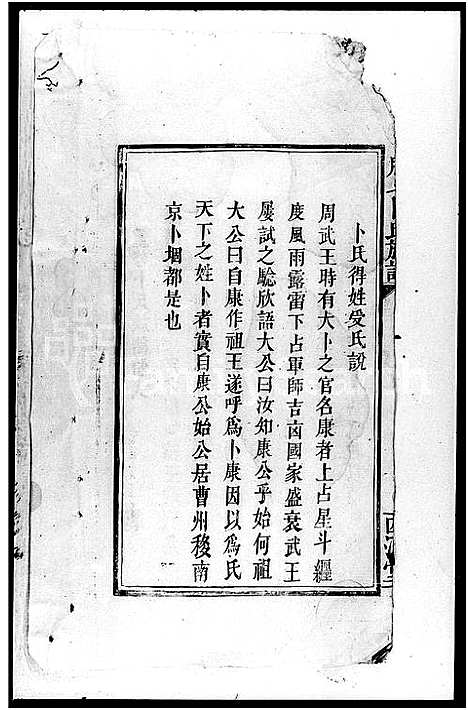 卜氏得姓受氏說
周武王時有大卜之官名康者上占星斗纏
度風雨露雷下占軍師吉凶國家盛衰武王
屢試之騐欣語大公曰汝知康公乎始何祖
大公曰自康作祖王遂呼爲卜康因以爲氏
天下之姓卜者實自康公始公居曹州移南
京卜堌都是也
氏族譜
西河堂